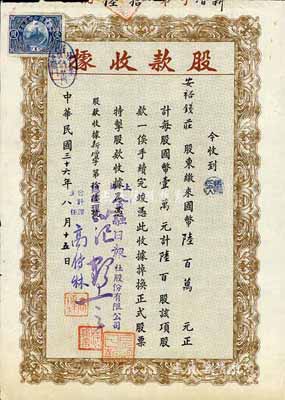 股款收據
今收到
安裕錢莊 股東繳來國幣陸百萬 元正
計每股國幣壹萬元計陸百股該項股
款一俟手續完竣憑此收據掉換正式股票
特掣股款收據爲憑
日報社股份有限公司
股款收據新字第拾陸號
中華民國三十六年八月十五日